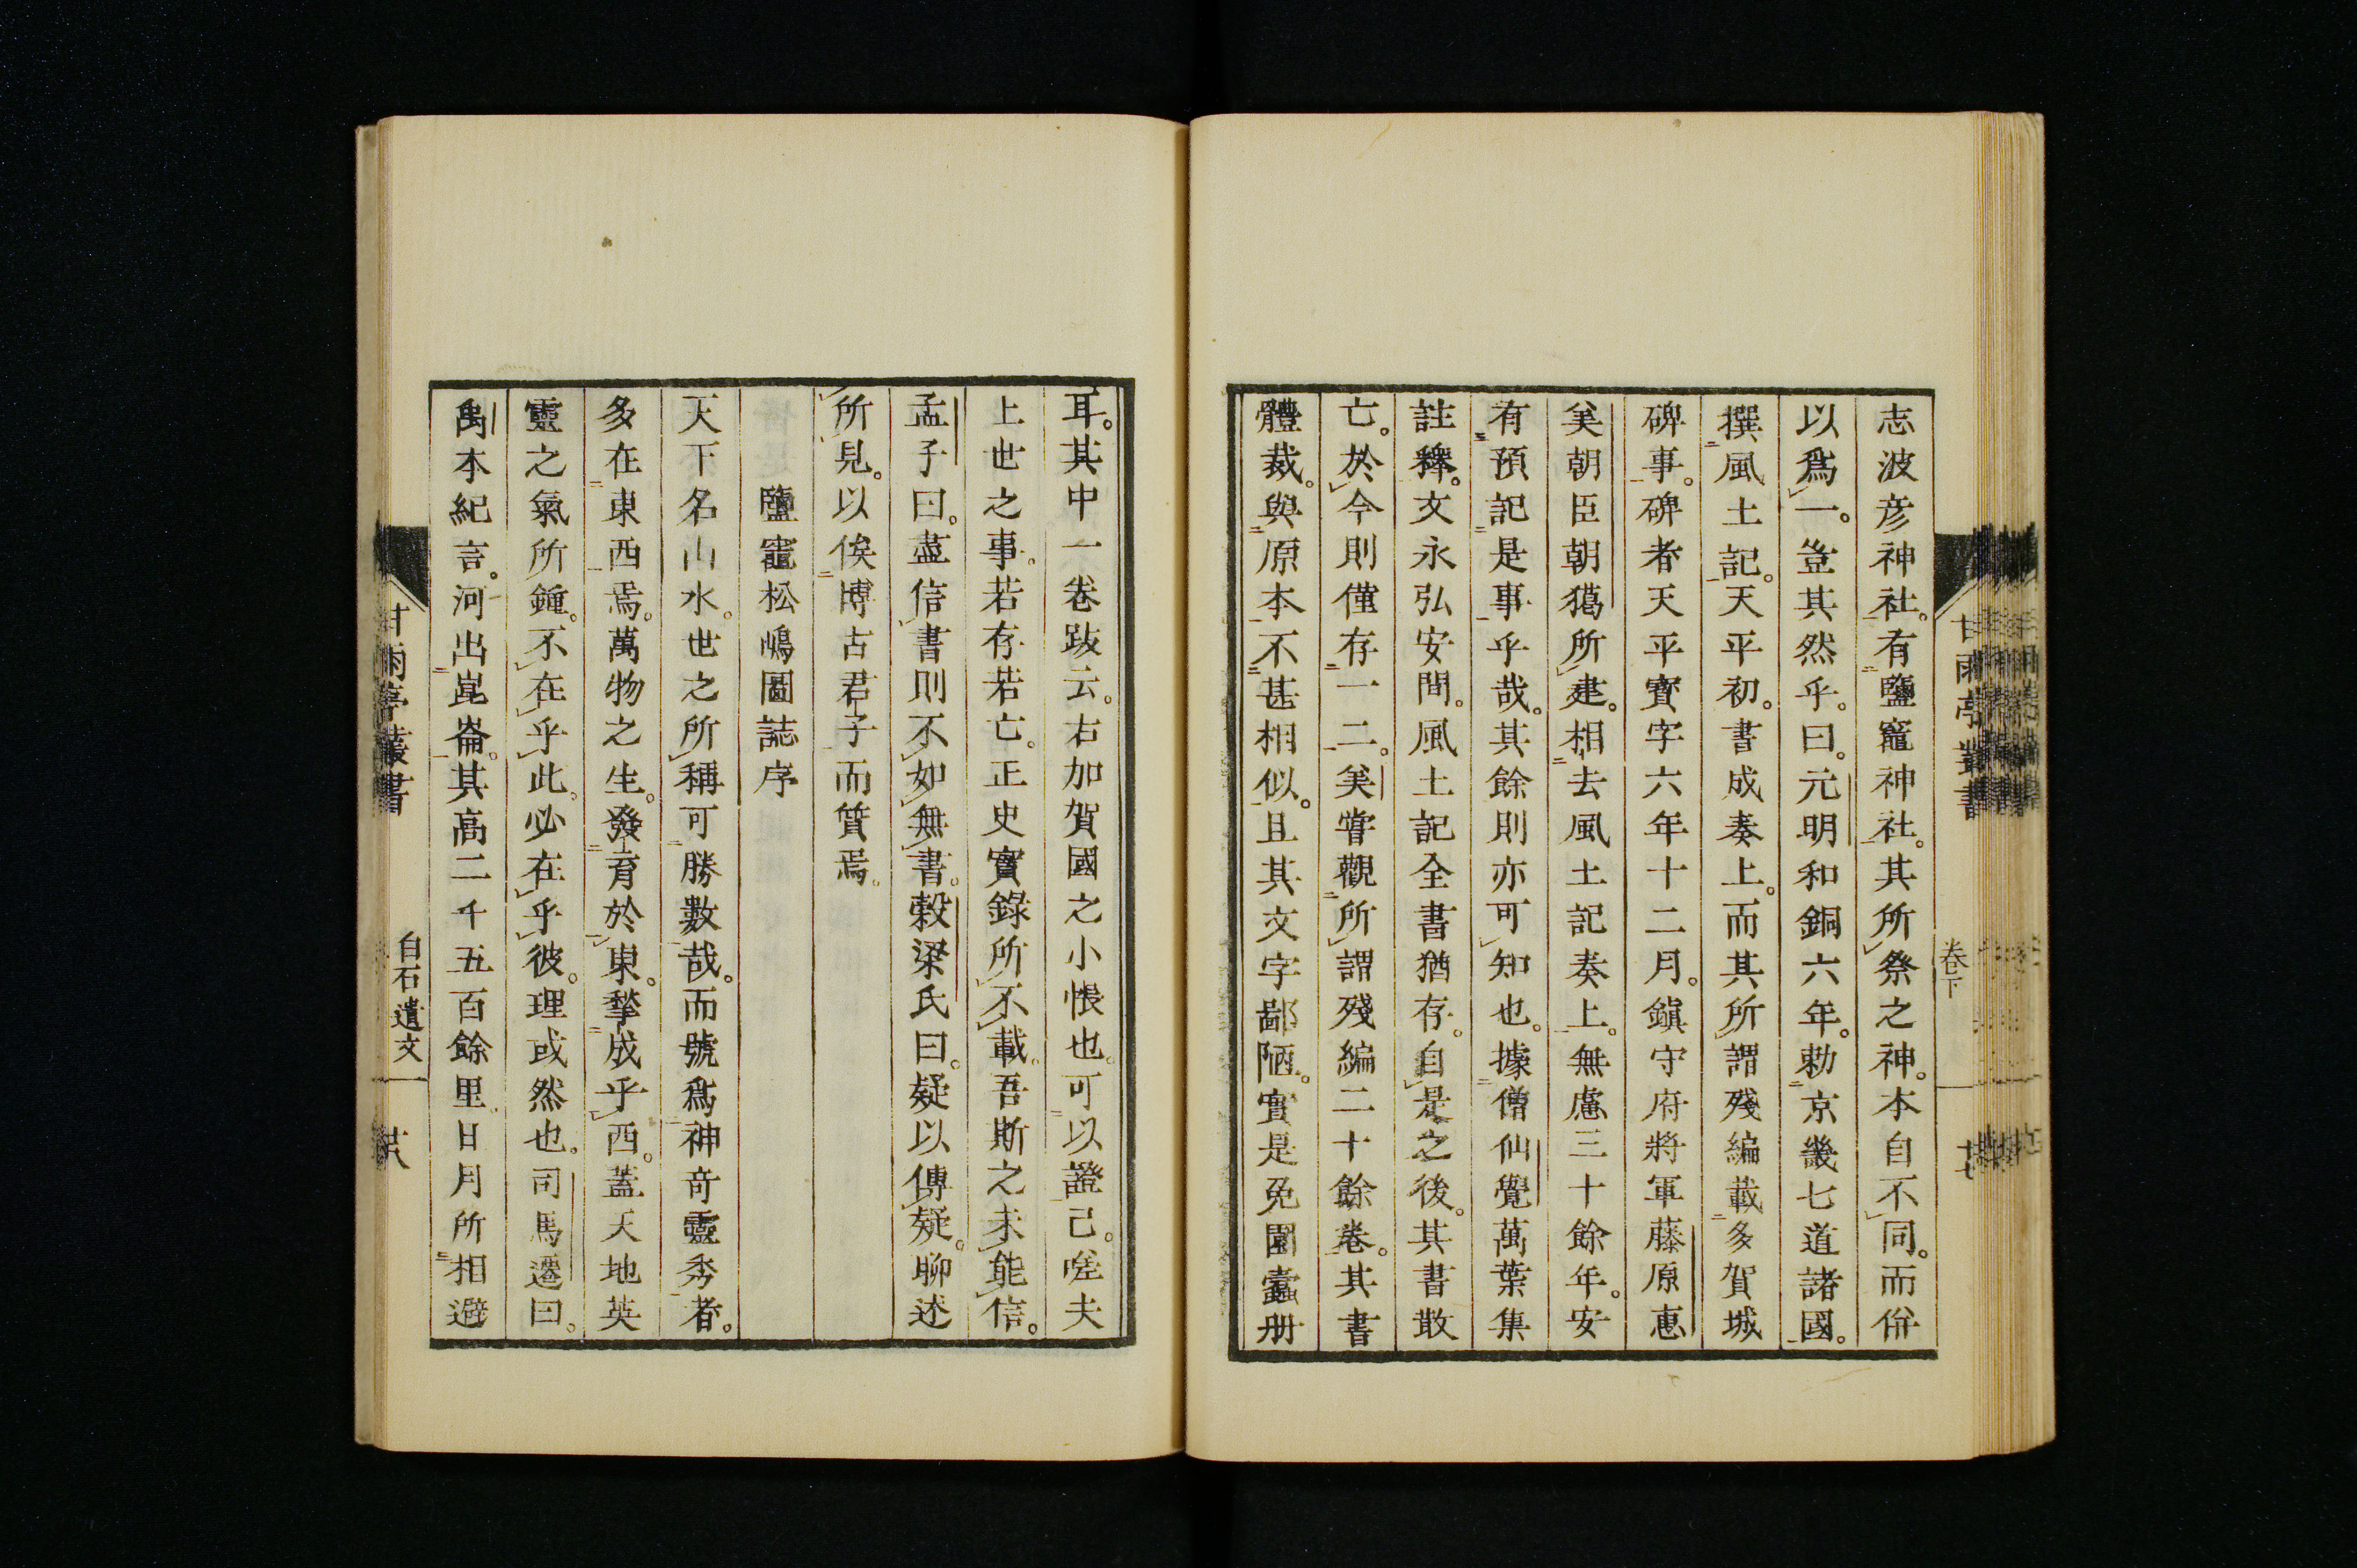 志波彦神社。有鹽竈神社。其所祭之神。本自不同。而併
以爲一。豈其然乎。曰。元明和銅六年。勅京畿七道諸國。
撰風土記。天平初。書成奏上。而其所謂殘編載多賀城
碑事。碑者天平寶字六年十二月。鎭守府將軍藤原惠
美朝臣朝獦所建。相去風土記奏上。無慮三十餘年。安
有預記是事乎哉。其餘則亦可知也。據僧仙覺萬葉集
註釋。文永弘安間。風土記全書猶存。自是之後。其書散
亡。於今則僅存一二。美嘗觀所謂殘編二十餘卷。其書
體裁。與原本不甚相似。且其文字鄙陋。實是兎園蠧册
甘雨亭叢書
卷下
耳。其中一卷跋云。右加賀國之小帳也。可以證已。嗟夫
上世之事。若存若亡。正史實錄所不載。吾斯之未能信。
孟子曰。盡信書則不如無書。穀梁氏曰。疑以傳疑。聊述
所見。以俟博古君子而質焉。
鹽竈松嶋圖誌序
天下名山水。世之所稱可勝數哉。而號爲神奇靈秀者。
多在東西焉。萬物之生。發育於東。揫成乎西。蓋天地英
靈之氣所鍾。不在乎此。必在乎彼。理或然也。司馬遷曰。
禹本紀言。河出崑崙。其高二千五百餘里。日月所相避
甘雨亭叢書
白石遺文